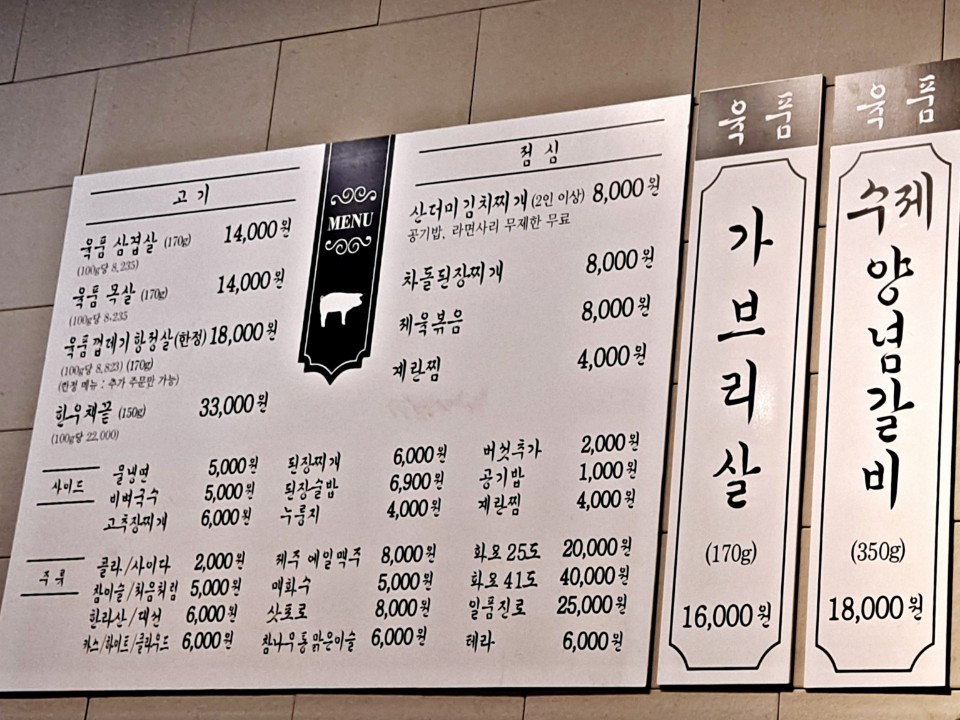 고기
육품 삼겹살 (170g) 14,000원
(100g당 8,235)
육품 목살 (170g) 14,000원
(100g당 8,235
육품껍데기항정살(한정) 18,000원
(100g당 8,823) (170g)
(한정 메뉴 : 추가 주문만 가능)
한우채끝 (150g) 33,000원
(100g당 22,000)
MENU
점심
산더미김치찌개 (2인 이상) 8,000원
공기밥, 라면사리 무제한 무료
차돌된장찌개 8,000원
제육볶음 8,000원
계란찜 4,000원
사이드
물냉면 5,000원 된장찌개 6,000원 버섯추가 2,000원
비빔국수 5,000원 된장술밥 6,900원 공기밥 1,000원
고추장찌개 6,000원 누룽지 4,000원 계란찜 4,000원
주류
콜라/사이다 2,000원 제주 에일맥주 8,000원 화요 25도 20,000원
참이슬/처음처럼 5,000원 매화수 5,000원 화요 41도 40,000원
한라산/대선 6,000원 삿포로 8,000원 일품진로 25,000원
카스/하이트/클라우드 6,000원 참나무통맑은이슬 6,000원 테라 6,000원
육품
가브리살
(170g)
16,000원
육품
수제
양념갈비
(350g)
18,000원